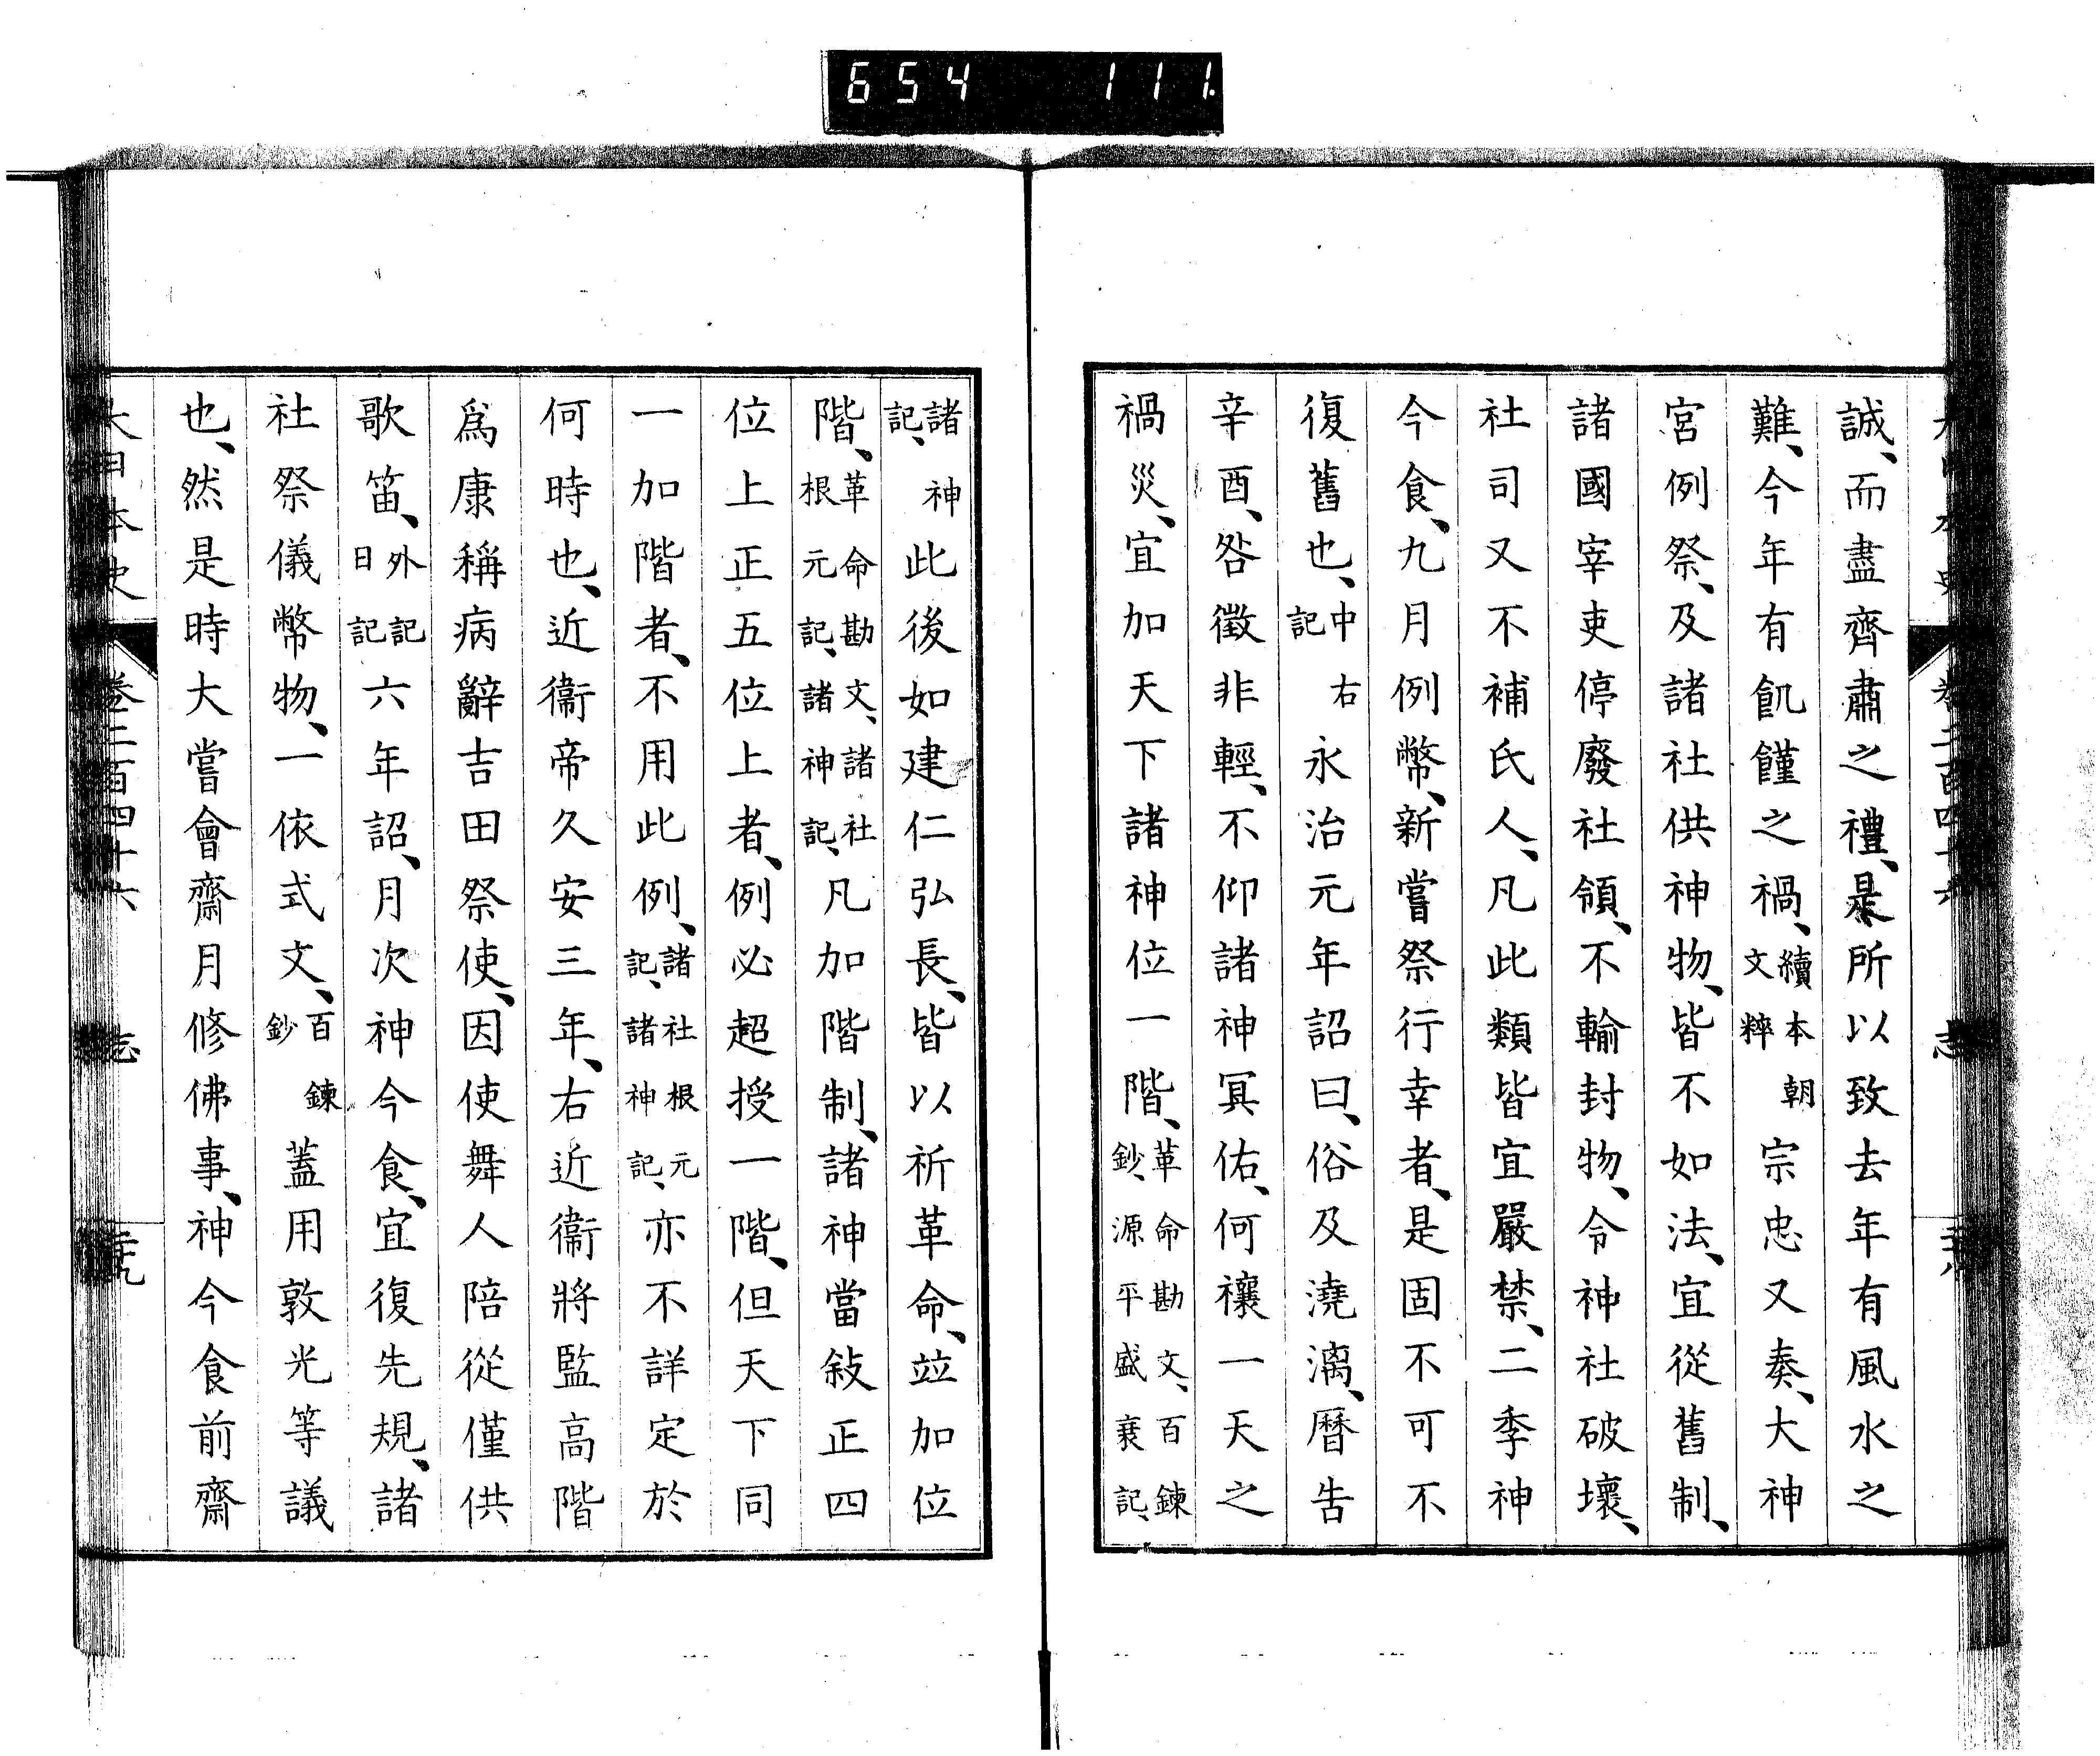 654 111.
誠、而盡齊肅之禮、是所以致去年有風水之
難、今年有飢饉之禍、續本朝文粹宗忠又奏、大神
宮例祭、及諸社供神物、皆不如法、宜從舊制、
諸國宰吏停廢社領、不輸封物、令神社破壞、
社司又不補氏人、凡此類皆宜嚴禁、二季神
今食、九月例幣、新嘗祭行幸者、是固不可不
復舊也、中右記永治元年詔曰、俗及澆漓、曆告
辛酉、咎徵非輕、不仰諸神冥佑、何禳一天之
禍災、宜加天下諸神位一階、革命勘文、百鍊鈔、源平盛衰記、
諸神記、此後如建仁弘長、皆以祈革命、竝加位
階、革命勘文、諸社根元記、諸神記、凡加階制、諸神當敍正四
位上正五位上者、例必超授一階、但天下同
一加階者、不用此例、諸社根元記、諸神記、亦不詳定於
何時也、近衞帝久安三年、右近衞將監高階
爲康稱病辭吉田祭使、因使舞人陪從僅供
歌笛、外記日記六年詔、月次神今食、宜復先規、諸
社祭儀幣物、一依式文、百鍊鈔蓋用敦光等議
也、然是時大嘗會齋月修佛事、神今食前齋
大日本史 卷二百四十六 志 二十九